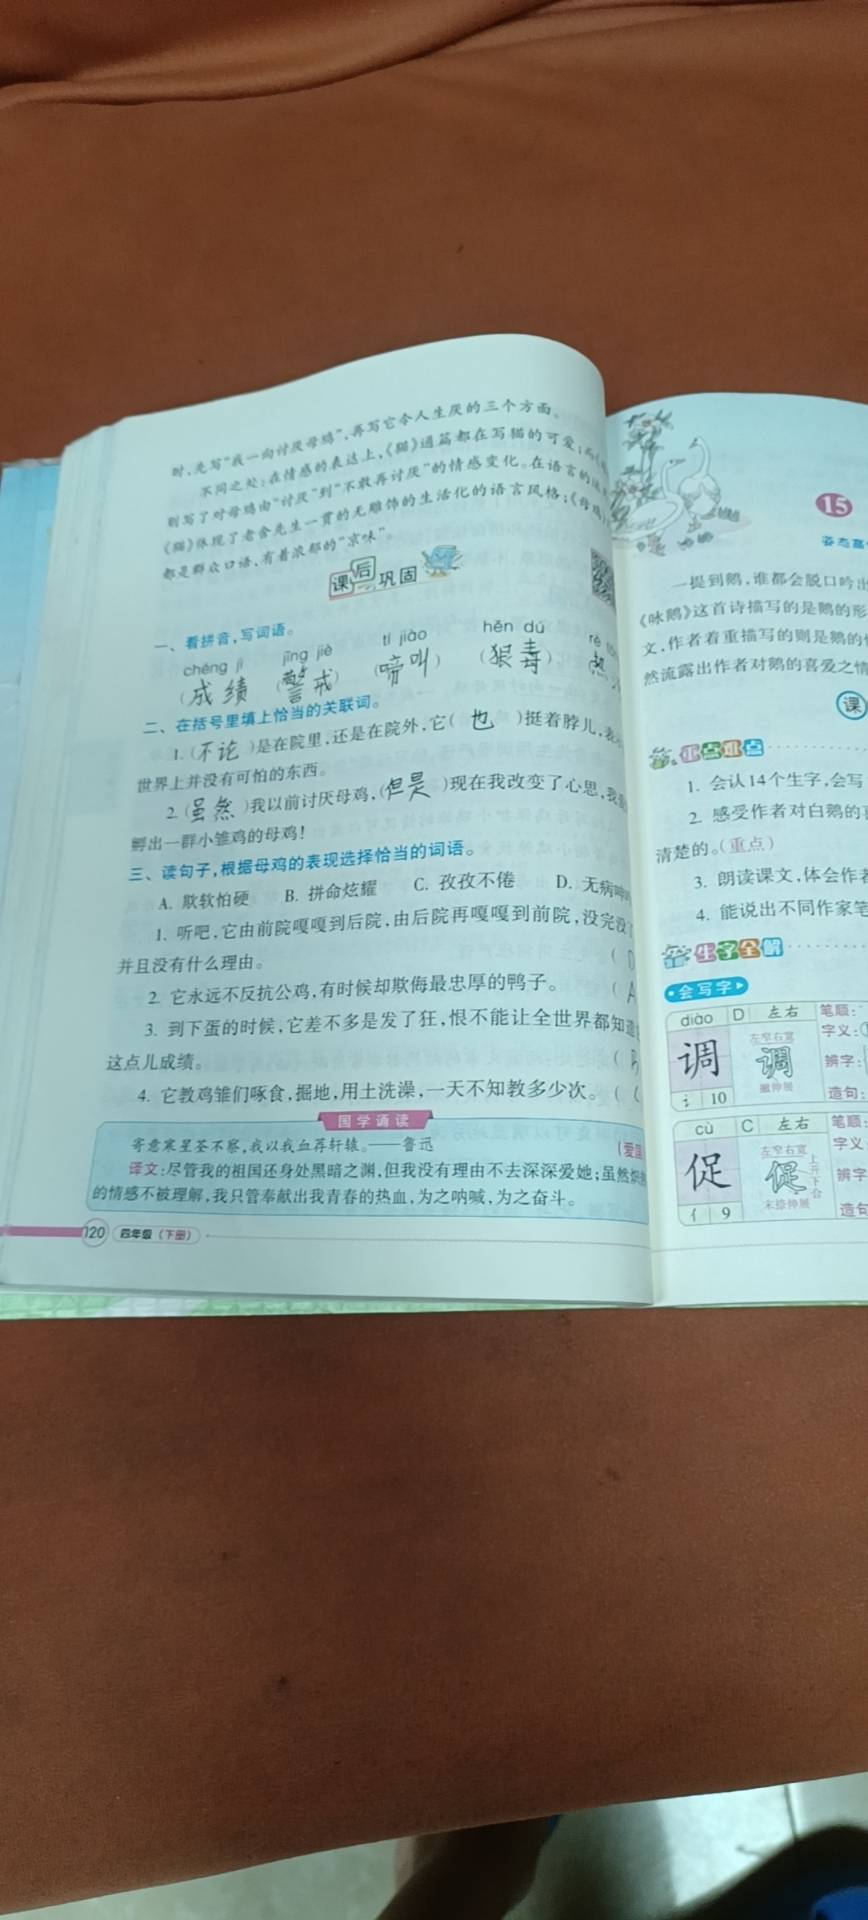 时,先写“我一向讨厌母鸡”,再写它令人生厌的三个方面。
不同之处:在情感的表达上,《猫》通篇都在写猫的可爱;而
则写了对母鸡由“讨厌”到“不敢再讨厌”的情感变化。在语言的
《猫》体现了老舍先生一贯的无雕饰的生活化的语言风格;《母鸡》
都是群众口语,有着浓郁的“京味”。
课后巩固
一、看拼音,写词语。
chéng jì jǐng jiè tí jiào hěn dú rè
(成绩 (警戒) (啼叫) (狠毒)
二、在括号里填上恰当的关联词。
1. (不论 )是在院里,还是在院外,它( 也 )挺着脖儿,表
世界上并没有可怕的东西。
2. (虽然 )我以前讨厌母鸡,(但是 )现在我改变了心思,我
孵出一群小雏鸡的母鸡!
三、读句子,根据母鸡的表现选择恰当的词语。
A. 欺软怕硬 B. 拼命炫耀 C. 孜孜不倦 D. 无病呻
1. 听吧,它由前院嘎嘎到后院,由后院再嘎嘎到前院,没完没
并且没有什么理由。 ( D
2. 它永远不反抗公鸡,有时候却欺侮最忠厚的鸭子。 ( A
3. 到下蛋的时候,它差不多是发了狂,恨不能让全世界都知道
这点儿成绩。 ( B
4. 它教鸡雏们啄食,掘地,用土洗澡,一天不知教多少次。 ( C
国学诵读
寄意寒星荃不察,我以我血荐轩辕。——鲁迅 (爱国
译文:尽管我的祖国还身处黑暗之渊,但我没有理由不去深深爱她;虽然炽热
的情感不被理解,我只管奉献出我青春的热血,为之呐喊,为之奋斗。
120 四年级(下册)
15
姿态高
一提到鹅,谁都会脱口吟出
《咏鹅》这首诗描写的是鹅的形
文,作者着重描写的则是鹅的
然流露出作者对鹅的喜爱之情
课
重点难点
1. 会认14个生字,会写
2. 感受作者对白鹅的喜
清楚的。(重点)
3. 朗读课文,体会作者
4. 能说出不同作家笔
生字全解
会写字
diào D 左右 笔顺:
调 左窄右宽 调 撇伸展 字义:①
辨字:
讠 10 造句:
cù C 左右 笔顺:
促 左窄右宽 促 上开下合 末捺伸展 字义
辨字
亻 9 造句